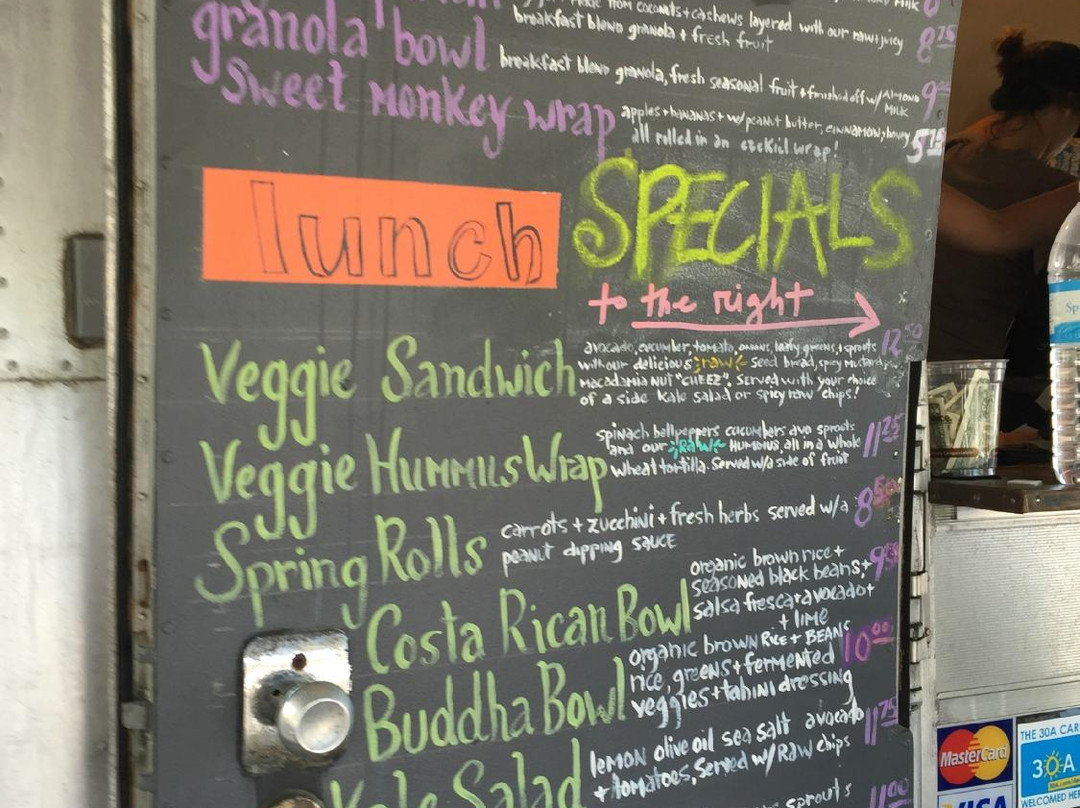 from coconuts + cashews layered with our raw + juicy
granola bowl breakfast blend granola + fresh fruit 8.75
sweet monkey wrap breakfast blend granola, fresh seasonal fruit + finished off w/ Almond Milk 9
apples + bananas + w/ peanut butter, cinnamon, honey
all rolled in an ezekiel wrap! 5.75
lunch SPECIALS
to the right
Veggie Sandwich avocado, cucumber, tomato, onions, leafy greens, + sprouts 12.50
with our delicious raw seed bread, spicy mustard,
macadamia nut "CHEEZ". Served with your choice
of a side kale salad or spicy raw chips!
Veggie Hummus Wrap spinach bellpeppers cucumbers avo sprouts 11.25
and our Raw Hummus, all in a whole
wheat tortilla. Served w/a side of fruit
Spring Rolls carrots + zucchini + fresh herbs served w/a 8.50
peanut dipping sauce
Costa Rican Bowl organic brown rice + 9.50
seasoned black beans, +
salsa fresca + avocado +
+ lime
Buddha Bowl organic brown Rice + BEANS 10.00
rice, greens + fermented
veggies + tahini dressing
Kale Salad lemon olive oil sea salt avocado 11.75
+ tomatoes, Served w/ Raw chips
sprouts 11.00
MasterCard
VISA
THE 30A CAR
30A
WELCOMED HE
Sp